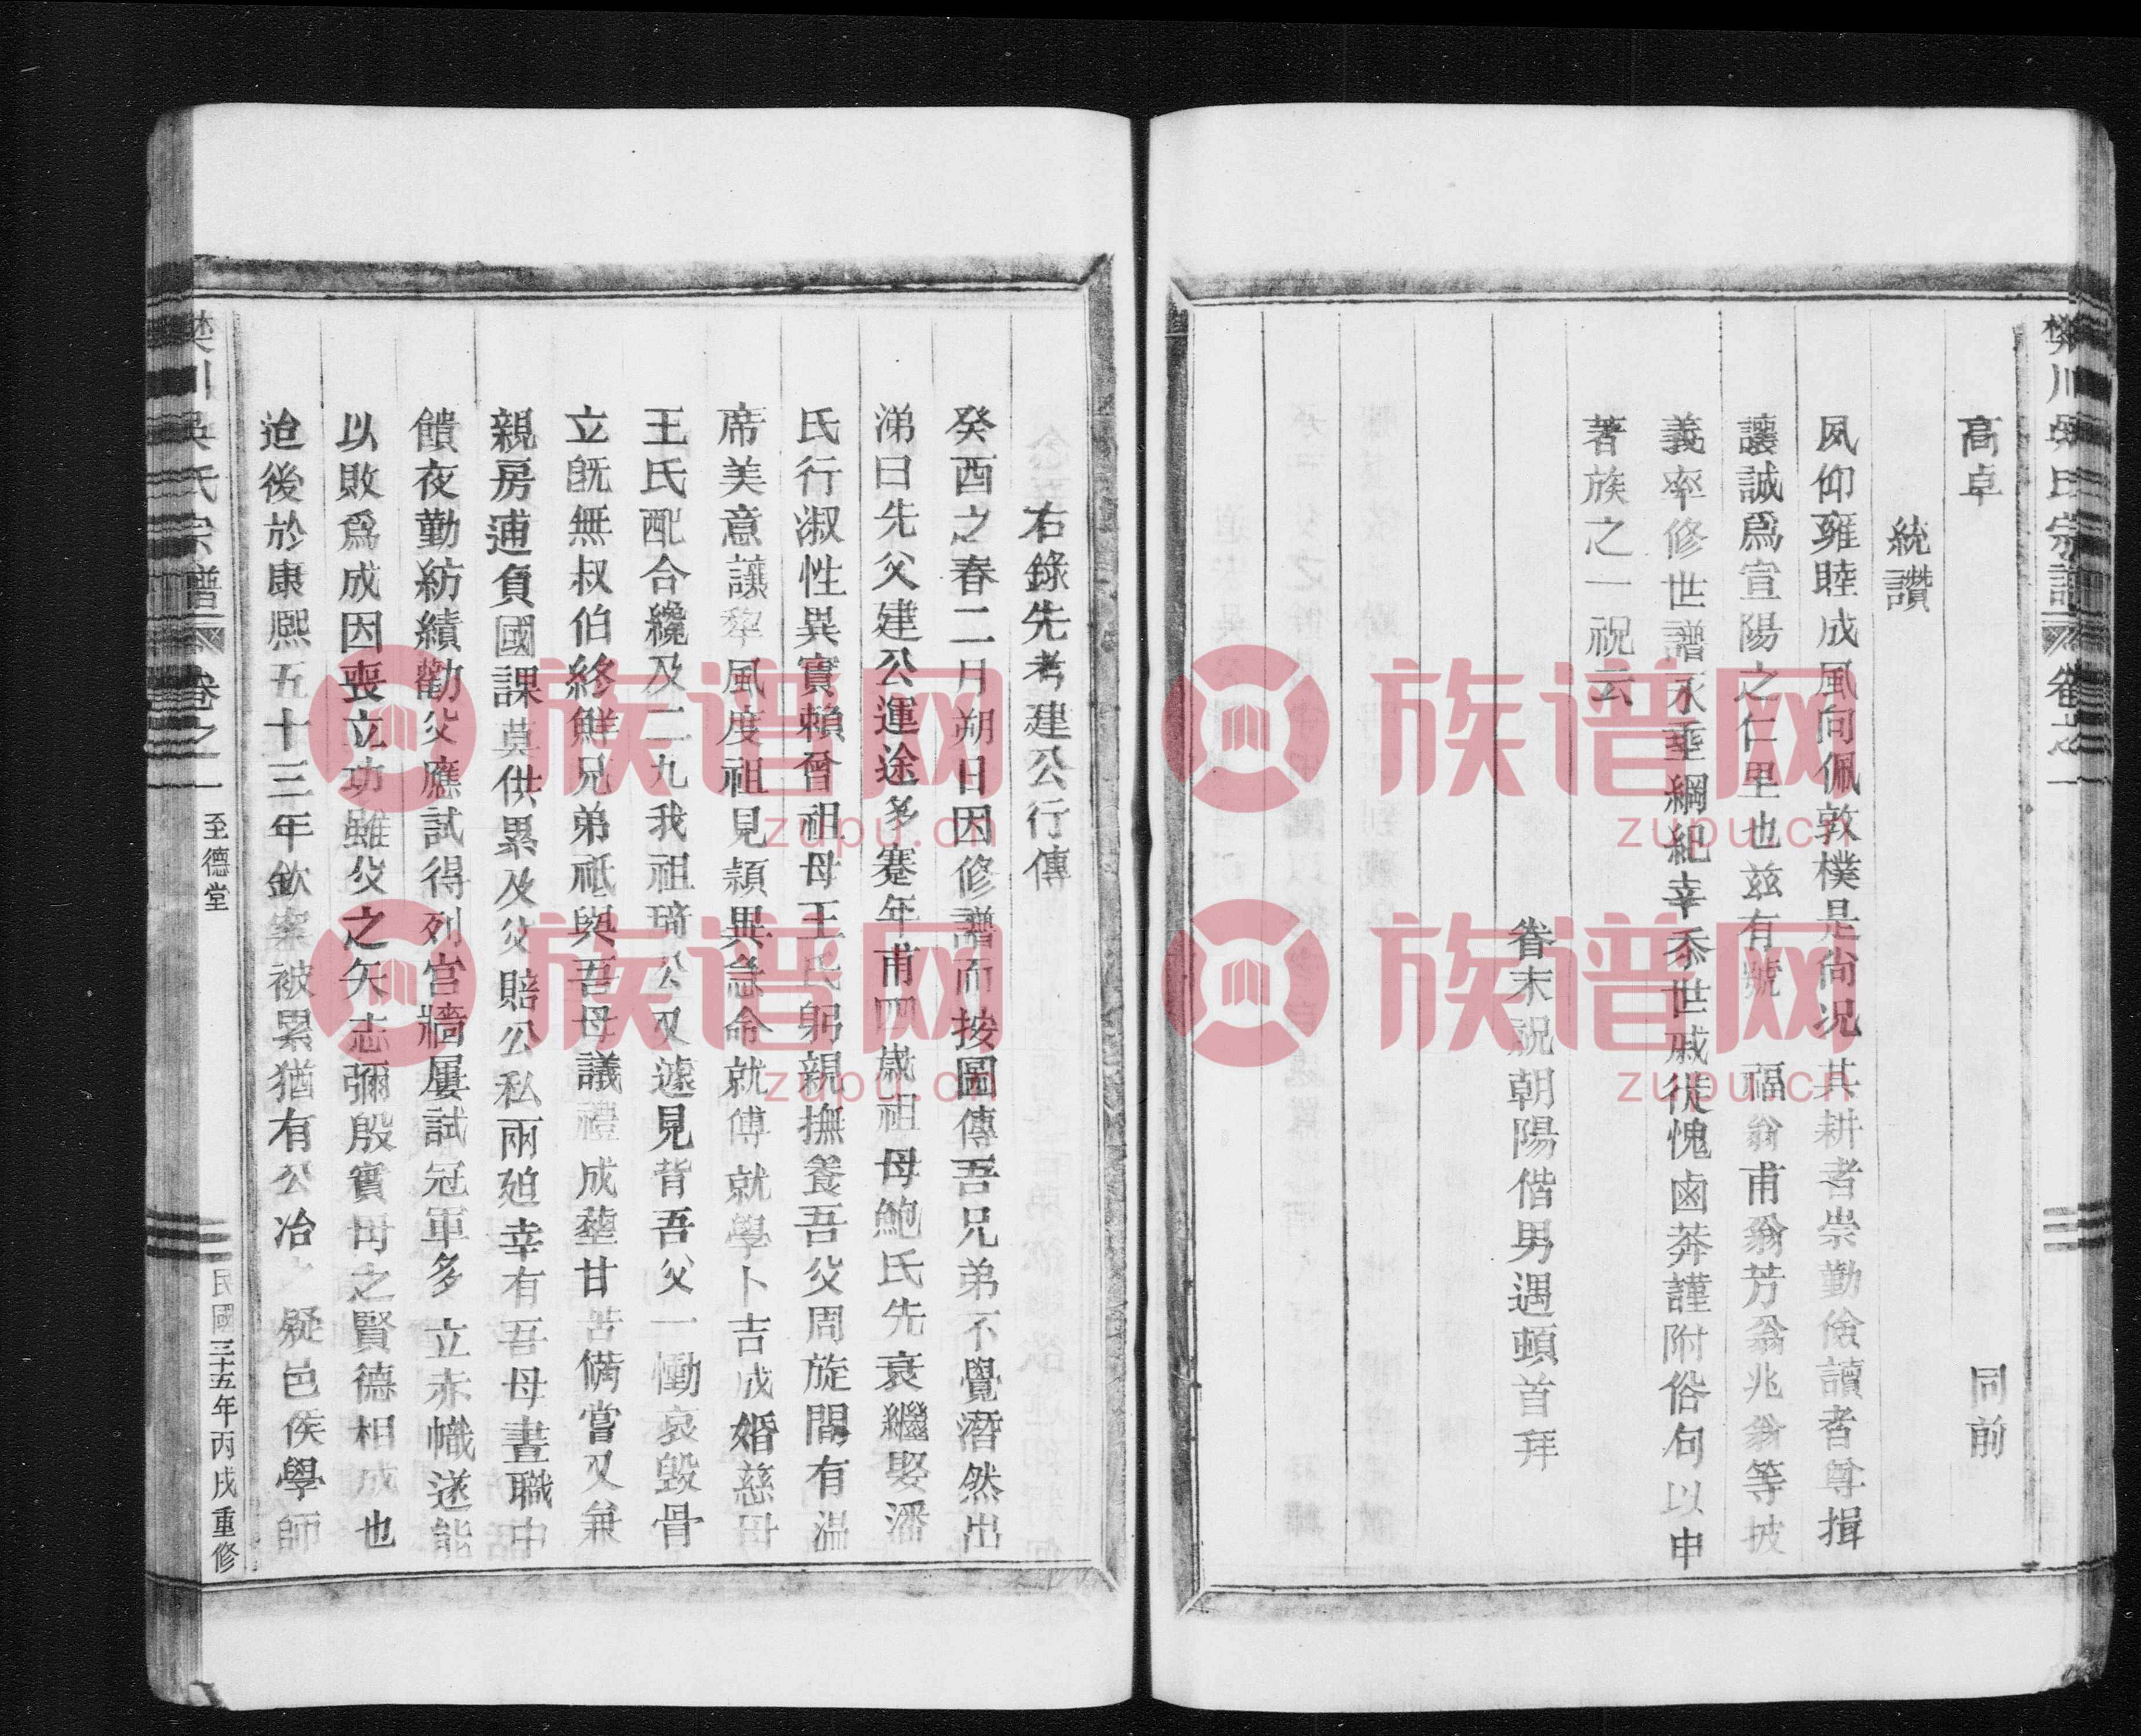 樊川吳氏宗譜 卷之一
高卓 同前
統讚
夙仰雍睦成風向佩敦樸是尙况其耕者崇勤儉讀者尊揖
讓誠爲宣陽之仁里也茲有號 福翁甫翁芳翁兆翁等披
義率修世譜永垂綱紀幸忝世戚徒愧鹵莽謹附俗句以申
著族之一祝云
眷末祝朝陽偕男遇頓首拜
右錄先考建公行傳
癸酉之春二月朔日因修譜而按圖傳吾兄弟不覺潛然出
涕曰先父建公運途多蹇年甫四歲祖母鮑氏先衰繼娶潘
氏行淑性異實賴曾祖母王氏躬親撫養吾父周旋間有温
席美意讓犂風度祖見穎異急命就傅就學卜吉成婚慈母
王氏配合纔及二九我祖琦公又遽見背吾父一慟哀毀骨
立旣無叔伯終鮮兄弟祗與吾母議禮成塟甘苦備嘗又兼
親房逋負國課莫供累及父賠公私兩廹幸有吾母晝職中
饋夜勤紡績勸父應試得列宮牆屢試冠軍多立赤幟遂能
以敗爲成因喪立功雖父之矢志彌殷實母之賢德相成也
迨後於康熙五十三年欽案被累猶有公冶之疑邑侯學師
樊川吳氏宗譜 卷之一 至德堂 民國三十五年丙戌重修
族谱网
zupu.cn
族谱网
zupu.cn
族谱网
zupu.cn
族谱网
zupu.cn